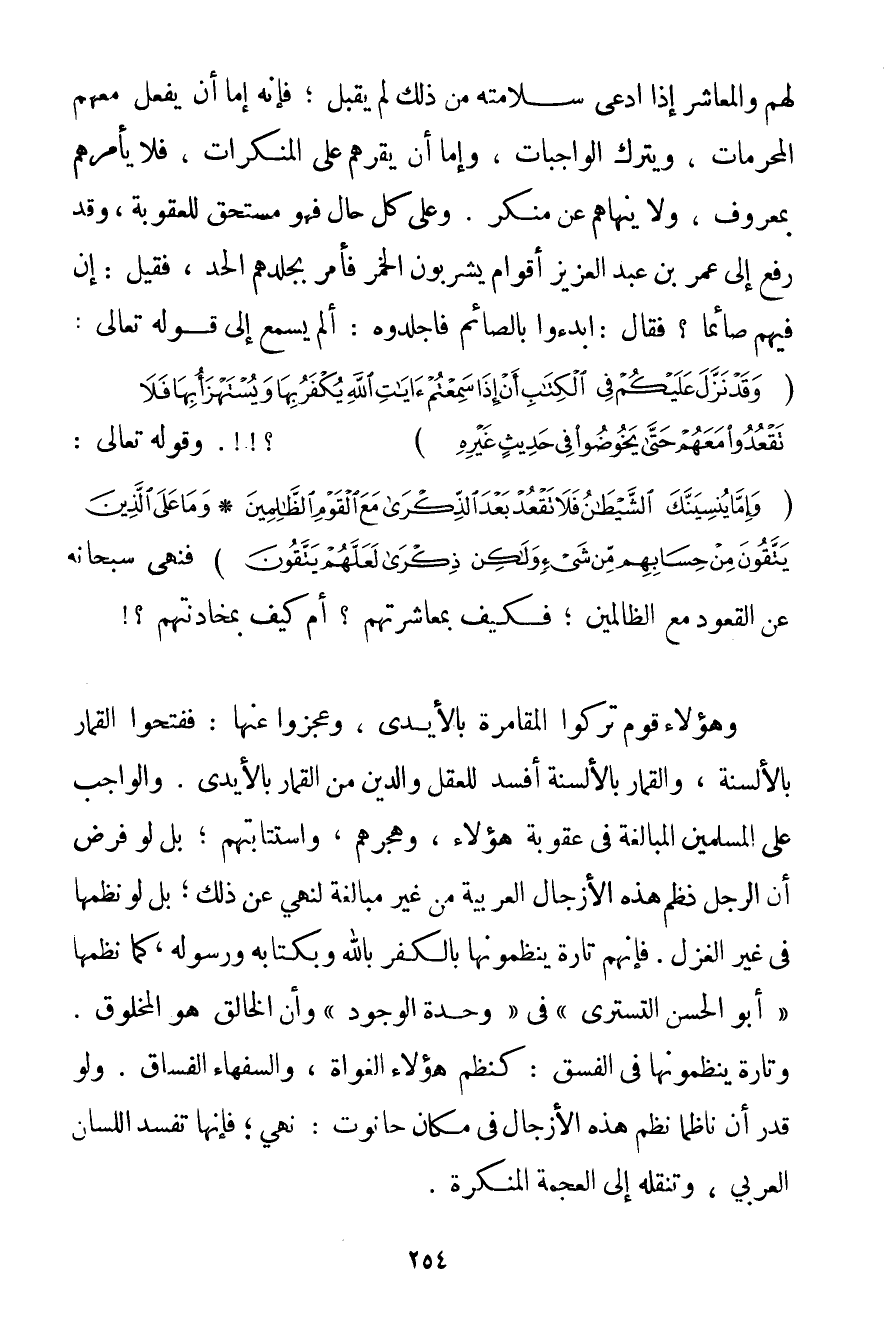 لهم والمعاشر إذا ادعى سلامته من ذلك لم يقبل ؛ فإنه إما أن يفعل معهم
المحرمات ، ويترك الواجبات ، وإما أن يقرهم على المنكرات ، فلا يأمرهم
بمعروف ، ولا ينهاهم عن منكر . وعلى كل حال فهو مستحق للعقوبة ، وقد
رفع إلى عمر بن عبد العزيز أقوام يشربون الخمر فأمر بجلدهم الحد ، فقيل : إن
فيهم صائما ؟ فقال : ابدءوا بالصائم فاجلدوه : ألم يسمع إلى قوله تعالى :
( وَقَدْ نَزَّلَ عَلَيْكُمْ فِي ٱلْكِتَٰبِ أَنْ إِذَا سَمِعْتُمْ ءَايَٰتِ ٱللَّهِ يُكْفَرُ بِهَا وَيُسْتَهْزَأُ بِهَا فَلَا
تَقْعُدُوا۟ مَعَهُمْ حَتَّىٰ يَخُوضُوا۟ فِي حَدِيثٍ غَيْرِهِ ) ؟!!. وقوله تعالى :
( وَإِمَّا يُنسِيَنَّكَ ٱلشَّيْطَٰنُ فَلَا تَقْعُدْ بَعْدَ ٱلذِّكْرَىٰ مَعَ ٱلْقَوْمِ ٱلظَّٰلِمِينَ * وَمَا عَلَى ٱلَّذِينَ
يَتَّقُونَ مِنْ حِسَابِهِم مِّن شَيْءٍ وَلَٰكِن ذِكْرَىٰ لَعَلَّهُمْ يَتَّقُونَ ) فنهى سبحانه
عن القعود مع الظالمين ؛ فكيف بمعاشرتهم ؟ أم كيف بمخادنتهم ؟!
وهؤلاء قوم تركوا المقامرة بالأيدى ، وعجزوا عنها : ففتحوا القمار
بالألسنة ، والقمار بالألسنة أفسد للعقل والدين من القمار بالأيدى . والواجب
على المسلمين المبالغة فى عقوبة هؤلاء ، وهجرهم ، واستتابتهم ؛ بل لو فرض
أن الرجل نظم هذه الأزجال العربية من غير مبالغة لنهي عن ذلك ؛ بل لو نظمها
فى غير الغزل . فإنهم تارة ينظمونها بالكفر بالله وبكتابه ورسوله ، كما نظمها
« أبو الحسن التسترى » فى « وحدة الوجود » وأن الخالق هو المخلوق .
وتارة ينظمونها فى الفسق : كنظم هؤلاء الغواة ، والسفهاء الفساق . ولو
قدر أن ناظما نظم هذه الأزجال فى مكان حانوت : نهي ؛ فإنها تفسد اللسان
العربي ، وتنقله إلى العجمة المنكرة .
٢٥٤